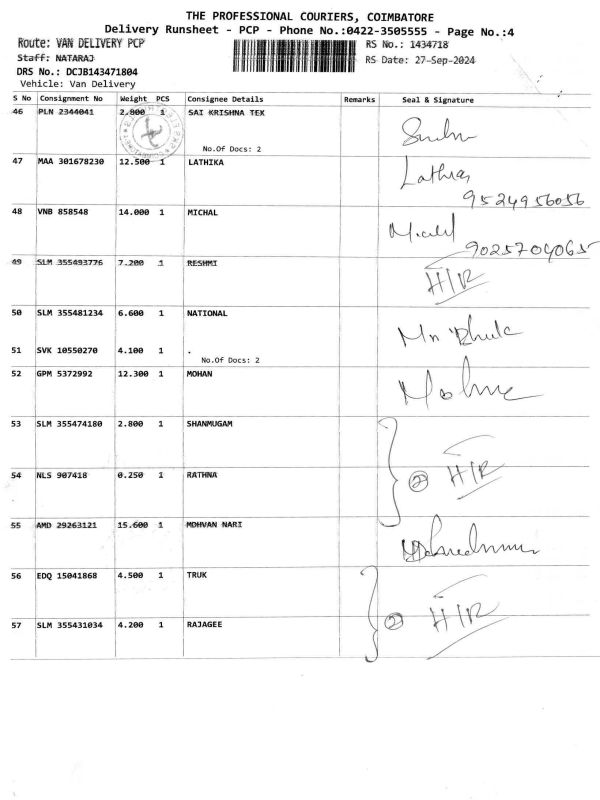 THE PROFESSIONAL COURIERS, COIMBATORE
Delivery Runsheet - PCP - Phone No.:0422-3505555 - Page No.:4
Route: VAN DELIVERY PCP
RS No.: 1434718
Staff: NATARAJ
RS Date: 27-Sep-2024
DRS No.: DCJB143471804
Vehicle: Van Delivery
S No Consignment No Weight PCS Consignee Details Remarks Seal & Signature
46 PLN 2344041 2.800 1 SAI KRISHNA TEX
No.Of Docs: 2
47 MAA 301678230 12.500 1 LATHIKA
Lathika
9524956056
48 VNB 858548 14.000 1 MICHAL
9025704065
49 SLM 355493776 7.200 1 RESHMI
H/R
50 SLM 355481234 6.600 1 NATIONAL
51 SVK 10550270 4.100 1 .
No.Of Docs: 2
52 GPM 5372992 12.300 1 MOHAN
53 SLM 355474180 2.800 1 SHANMUGAM
54 NLS 907418 0.250 1 RATHNA
2 H/R
55 AMD 29263121 15.600 1 MDHVAN NARI
56 EDQ 15041868 4.500 1 TRUK
2 H/R
57 SLM 355431034 4.200 1 RAJAGEE